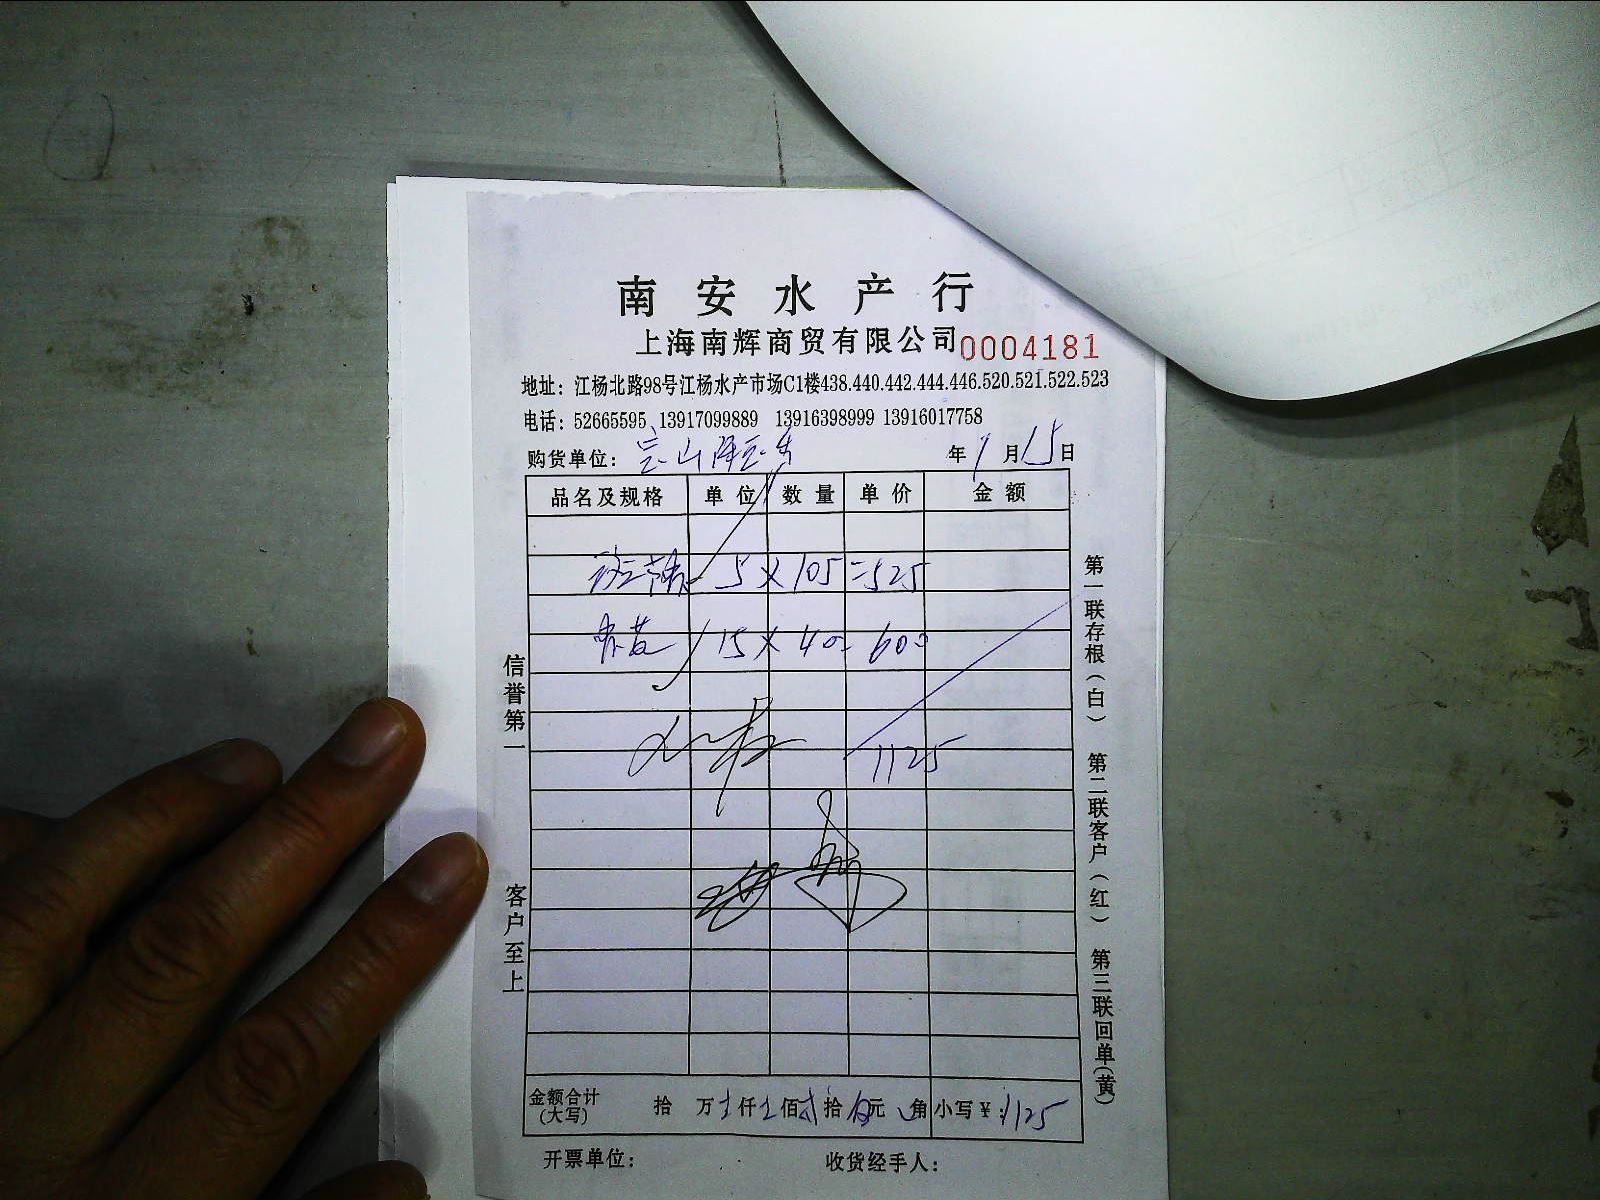 南安水产行
上海南辉商贸有限公司 0004181
地址：江杨北路98号江杨水产市场C1楼438.440.442.444.446.520.521.522.523
电话：52665595 13917099889 13916398999 13916017758
购货单位： 年 1 月 15 日
品名及规格 单位 数量 单价 金额
5 × 105 = 525
15 × 40 = 600
1125
信誉第一 客户至上
第一联存根（白） 第二联客户（红） 第三联回单（黄）
金额合计（大写） 拾 万 仟 佰 拾 元 角 小写￥：1125
开票单位： 收货经手人：